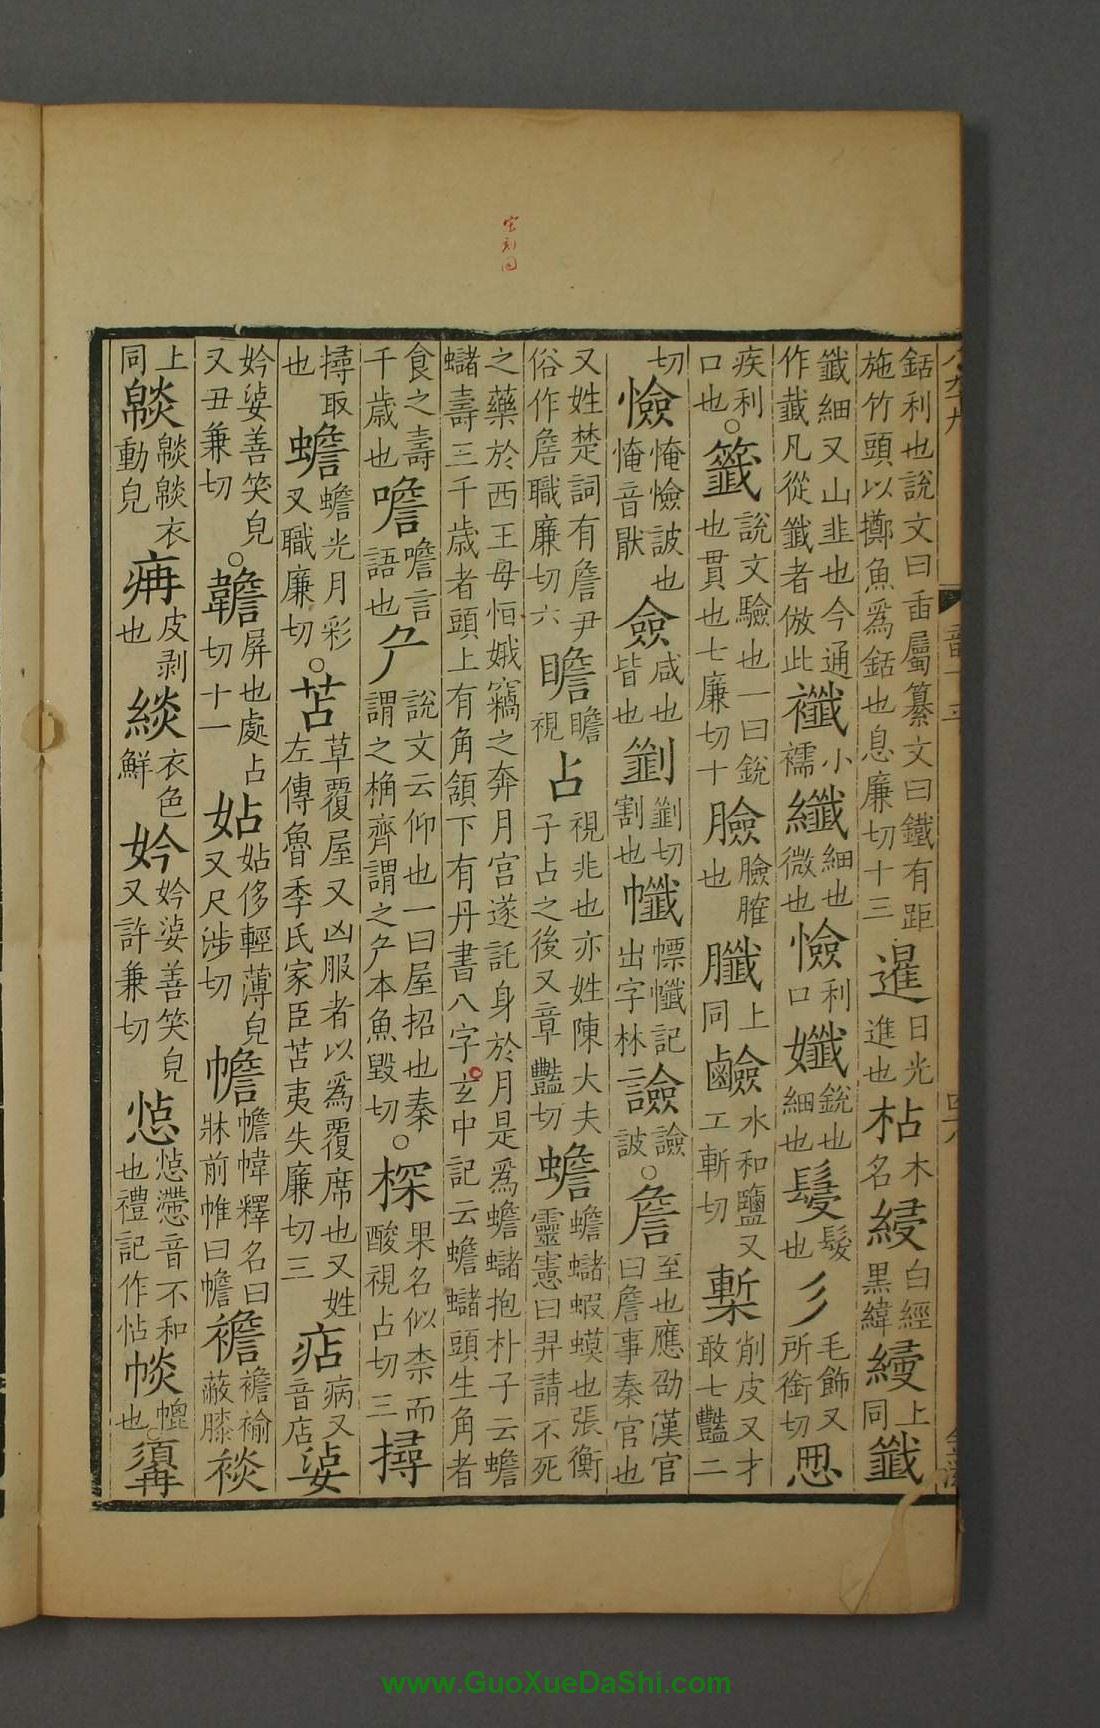 宋刻同
銛利也說文曰臿屬纂文曰鐵有距施竹頭以擲魚爲銛也息廉切十三暹日光進也枮木名綅白經黑緯縵上同籤
籤細又山韭也今通作韱凡從韱者倣此襳小襦纖細也微也憸利口孅銳也細也鬘髮也彡毛飾又所銜切思
疾利口也○籤說文驗也一曰銳也貫也七廉切十臉臉膗也臘上同鹼水和鹽又工斬切槧削皮又才敢七豔二
切憸憸詖也憸音猒僉咸也皆也㔋㔋切割也幟幖幟記出字林譣譣詖○詹至也應劭漢官曰詹事秦官也
又姓楚詞有詹尹俗作詹職廉切六瞻瞻視占視兆也亦姓陳大夫子占之後又章豔切蟾蟾蠩蝦蟆也張衡靈憲曰羿請不死
之藥於西王毋恒娥竊之奔月宫遂託身於月是爲蟾蠩抱朴子云蟾蠩壽三千歳者頭上有角頷下有丹書八字玄中記云蟾蠩頭生角者
食之壽千歳也噡噡言語也厃說文云仰也一曰屋招也秦謂之桷齊謂之厃本魚毀切○㮇果名似柰而酸視占切三撏
撏取也蟾蟾光月彩又職廉切○苫草覆屋又凶服者以爲覆席也又姓左傳魯季氏家臣苫夷失廉切三痁病又音店㛪
妗㛪善笑皃又丑兼切○韂屏也處占切十一姑姑侈輕薄皃又尺涉切幨幨幃釋名曰牀前帷曰幨襜襜褕蔽膝裧
上同㷋㷋㷋衣動皃㾆皮剥也緂衣色鮮妗妗㛪善笑皃又許兼切惉惉懘音不和也禮記作怗㤴㡓也○䫇